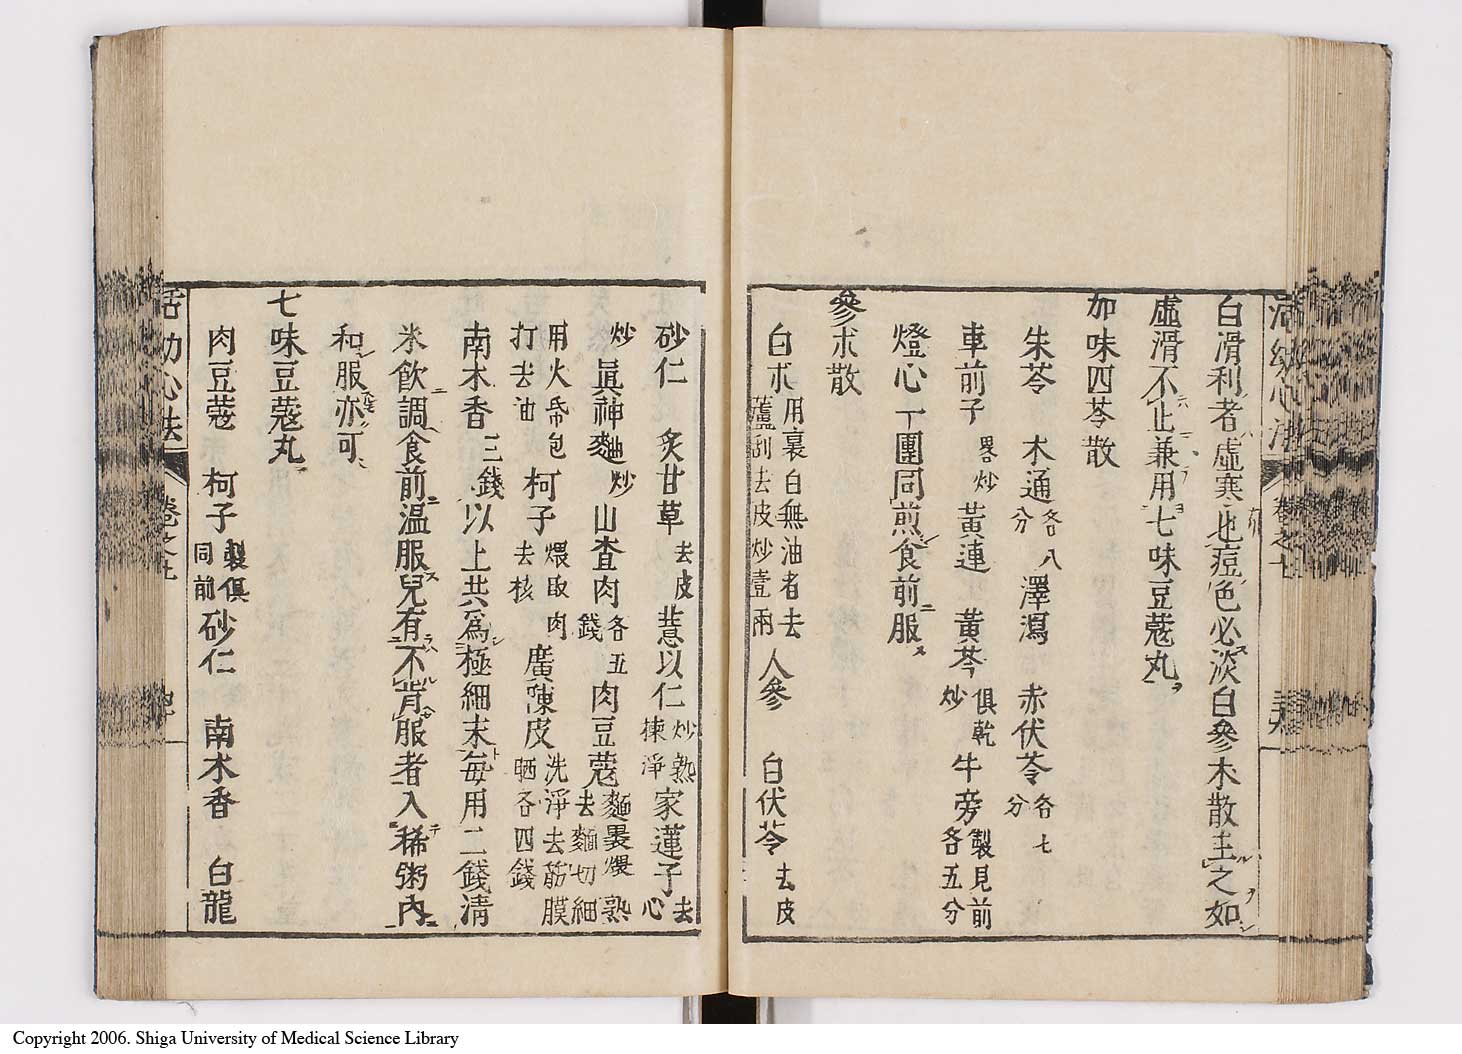 白滑利者虛寒也痘色必淡白參朮散主之如
虛滑不止兼用七味豆蔻丸
加味四苓散
朱苓 木通各八分 澤瀉 赤伏苓各七分
車前子畧炒 黃連 黃芩俱乾炒 牛旁製見前各五分
燈心一團同煎食前服
參朮散
白朮用裏白無油者去蘆刮去皮炒壹兩 人參 白伏苓去皮
砂仁 炙甘草去皮 薏以仁炒熟楝淨 家蓮子去心
炒 眞神麯炒 山査肉各五錢 肉豆蔻麵裹煨熟去麵切細
用火帋包打去油 柯子煨取肉去核 廣陳皮洗淨去筋膜晒各四錢
南木香三錢 以上共爲極細末每用二錢清
米飲調食前温服兒有不肯服者入稀粥內
和服亦可
七味豆蔻丸
肉豆蔻 柯子製俱同前 砂仁 南木香 白龍
活幼心法 卷之七
活幼心法 卷之七
Copyright 2006. Shiga University of Medical Science Library